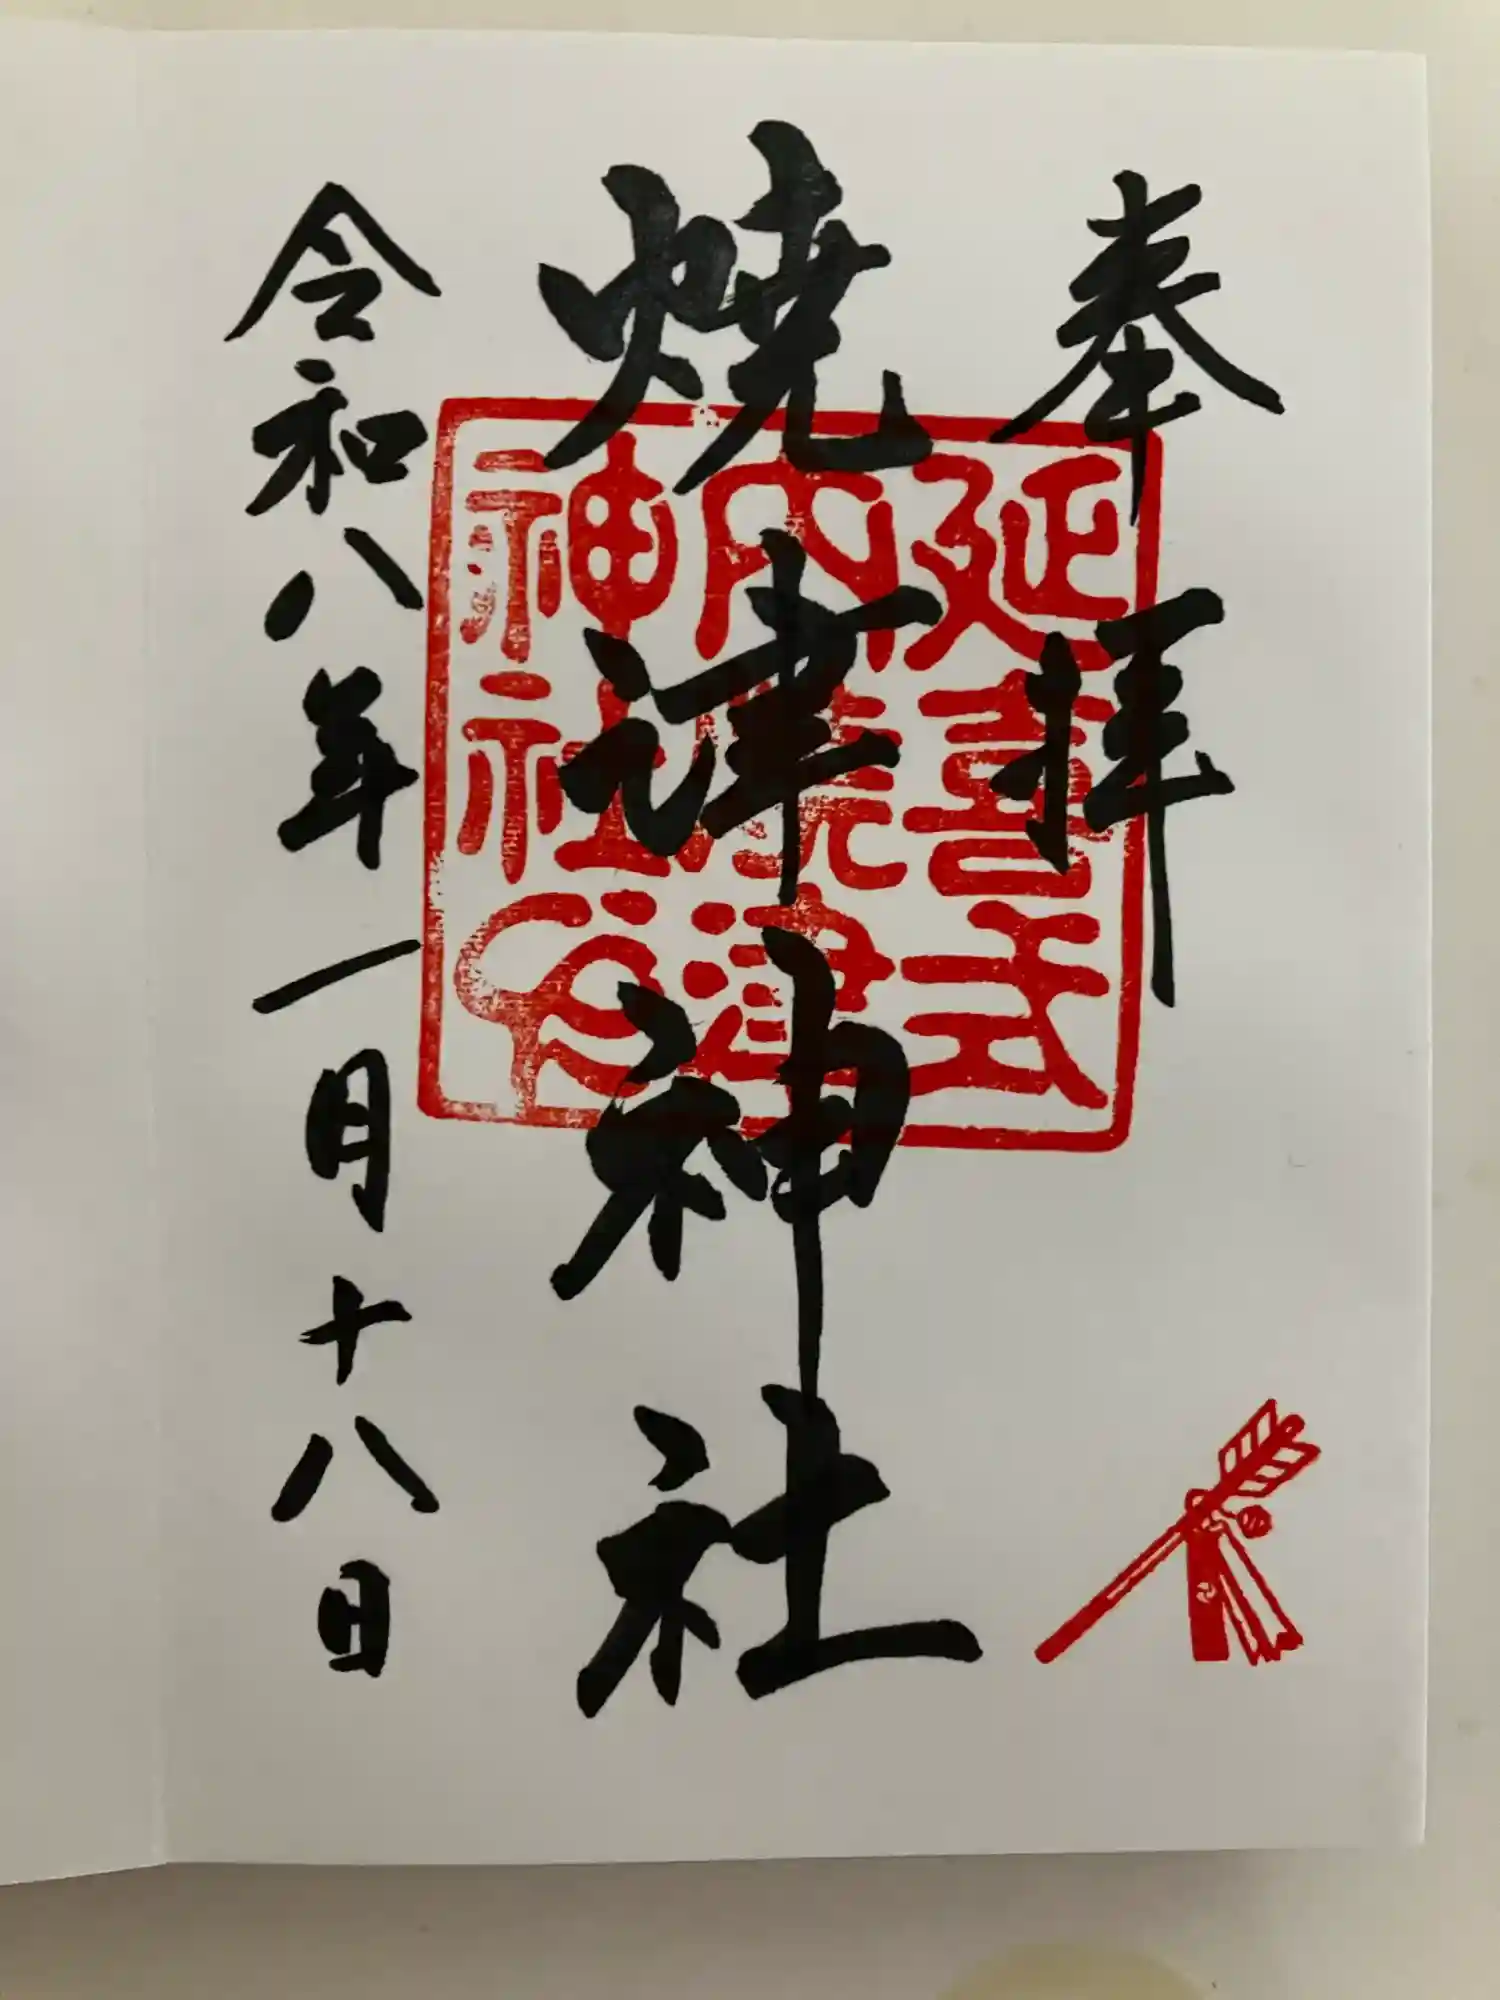 奉拝
焼津神社
令和八年一月十八日
延喜式
内焼津
神社